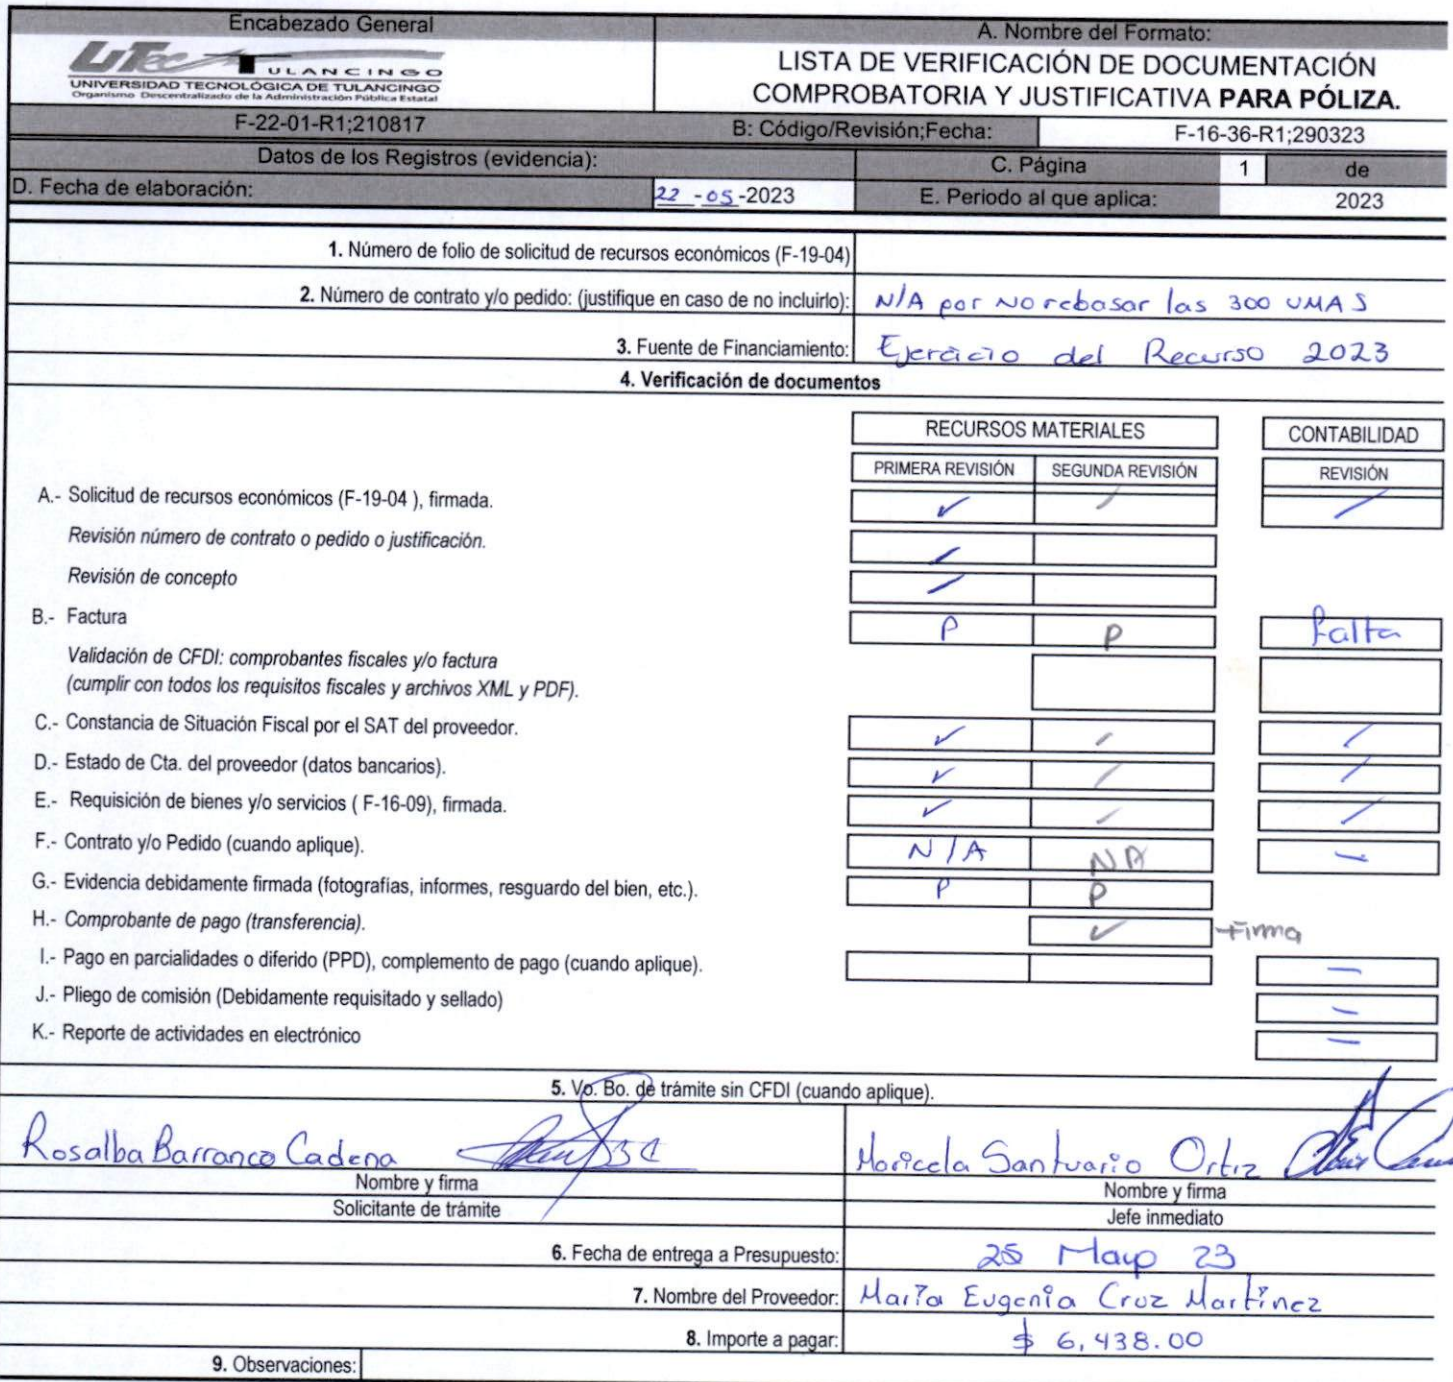 Encabezado General
A. Nombre del Formato:
UTec TULANCINGO
UNIVERSIDAD TECNOLÓGICA DE TULANCINGO
Organismo Descentralizado de la Administración Pública Estatal
LISTA DE VERIFICACIÓN DE DOCUMENTACIÓN
COMPROBATORIA Y JUSTIFICATIVA PARA PÓLIZA.
F-22-01-R1;210817
B: Código/Revisión;Fecha: F-16-36-R1;290323
Datos de los Registros (evidencia):
C. Página 1 de
D. Fecha de elaboración: 22-05-2023
E. Periodo al que aplica: 2023
1. Número de folio de solicitud de recursos económicos (F-19-04)
2. Número de contrato y/o pedido: (justifique en caso de no incluirlo): N/A por No rebasar las 300 UMAS
3. Fuente de Financiamiento: Ejercicio del Recurso 2023
4. Verificación de documentos
RECURSOS MATERIALES CONTABILIDAD
PRIMERA REVISIÓN SEGUNDA REVISIÓN REVISIÓN
A.- Solicitud de recursos económicos (F-19-04 ), firmada. ✓ / /
Revisión número de contrato o pedido o justificación. ✓
Revisión de concepto /
B.- Factura P P Falta
Validación de CFDI: comprobantes fiscales y/o factura
(cumplir con todos los requisitos fiscales y archivos XML y PDF).
C.- Constancia de Situación Fiscal por el SAT del proveedor. ✓ / /
D.- Estado de Cta. del proveedor (datos bancarios). ✓ / /
E.- Requisición de bienes y/o servicios ( F-16-09), firmada. ✓ / /
F.- Contrato y/o Pedido (cuando aplique). N/A NA -
G.- Evidencia debidamente firmada (fotografías, informes, resguardo del bien, etc.). P P
H.- Comprobante de pago (transferencia). ✓ -Firma
I.- Pago en parcialidades o diferido (PPD), complemento de pago (cuando aplique). -
J.- Pliego de comisión (Debidamente requisitado y sellado) -
K.- Reporte de actividades en electrónico -
5. Vo. Bo. de trámite sin CFDI (cuando aplique).
Rosalba Barranco Cadena
Maricela Santuario Ortiz
Nombre y firma
Nombre y firma
Solicitante de trámite
Jefe inmediato
6. Fecha de entrega a Presupuesto: 25 Mayo 23
7. Nombre del Proveedor: María Eugenia Cruz Martínez
8. Importe a pagar: $ 6,438.00
9. Observaciones: